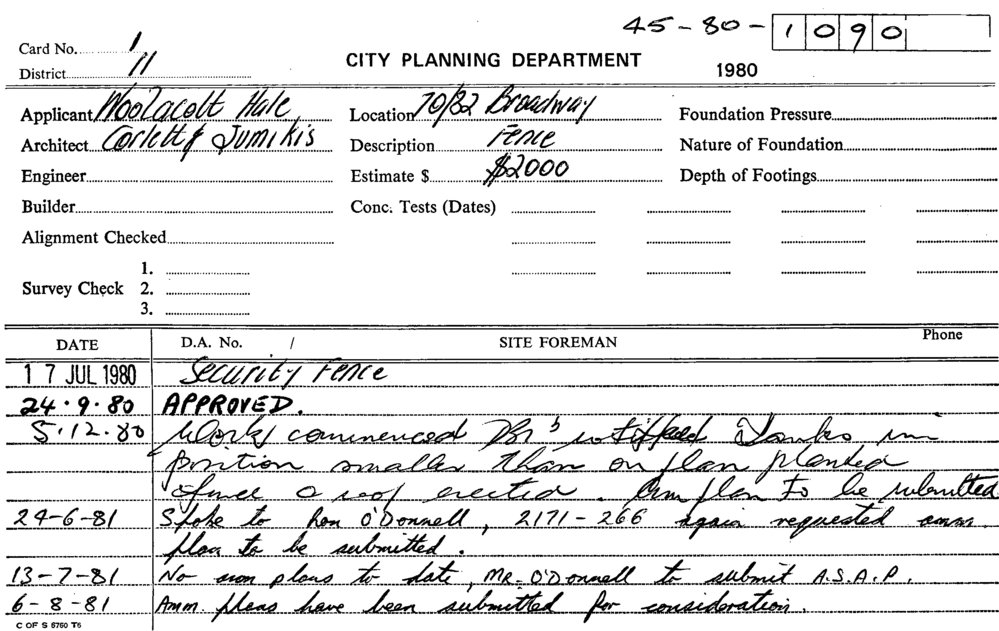 45-80-1090
Card No. 1
District 11
CITY PLANNING DEPARTMENT
1980
Applicant Woolacott Hale
Architect Corlett & Jumikis
Engineer
Builder
Alignment Checked
Survey Check 1.
2.
3.
Location 70/82 Broadway
Description Fence
Estimate $ $2000
Conc. Tests (Dates)
Foundation Pressure
Nature of Foundation
Depth of Footings
DATE D.A. No. / SITE FOREMAN Phone
17 JUL 1980 Security Fence
24.9.80 APPROVED.
5.12.80 Work commenced notified Tanks in
position smaller than on plan planted
fence & roof erected. Am plan to be submitted
24-6-81 Spoke to Ron O'Donnell, 2171-266 again requested amm
plan to be submitted.
13-7-81 No amm plans to date, MR. O'Donnell to submit A.S.A.P.
6-8-81 Amm. plans have been submitted for consideration.
C OF S 6760 T6